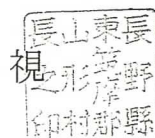 長野縣
東筑摩郡
山形村
長之印
視